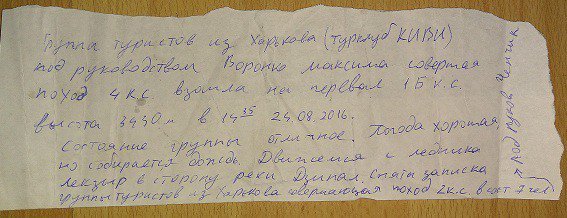 Группа туристов из Харькова (турклуб КИВИ)
под руководством Воронко Максима совершая
поход 4 к.с. взошла на перевал 1Б к.с.
высота 3490м в 14³⁵ 24.08.2016.
Состояние группы отличное. Погода хорошая,
но собирается дождь. Движемся с ледника
лекзыр в сторону реки Снята записка
группы туристов из Харькова совершающая поход 2к.с. в сост 7 чел
под руков.